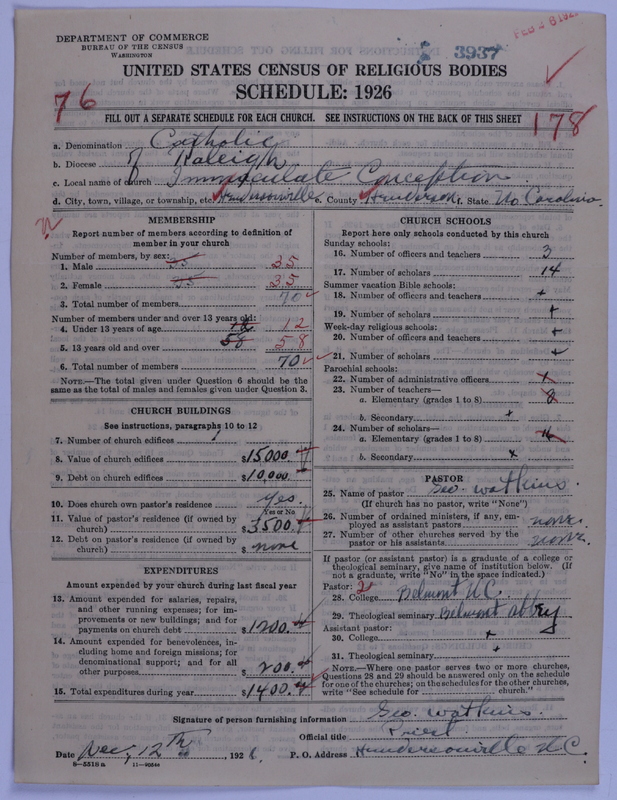 DEPARTMENT OF COMMERCE
BUREAU OF THE CENSUS
WASHINGTON
3937
FEB 2 8 192
UNITED STATES CENSUS OF RELIGIOUS BODIES
SCHEDULE: 1926
76
FILL OUT A SEPARATE SCHEDULE FOR EACH CHURCH. SEE INSTRUCTIONS ON THE BACK OF THIS SHEET
178
a. Denomination Catholic
b. Diocese of Raleigh
c. Local name of church Immaculate Conception
d. City, town, village, or township, etc. Hendersonville e. County Henderson f. State No Carolina
MEMBERSHIP
Report number of members according to definition of
member in your church
Number of members, by sex:
1. Male 35 35
2. Female 35 35
3. Total number of members 70
Number of members under and over 13 years old:
4. Under 13 years of age 12 12
5. 13 years old and over 58 58
6. Total number of members 70
NOTE.—The total given under Question 6 should be the
same as the total of males and females given under Question 3.
CHURCH BUILDINGS
See instructions, paragraphs 10 to 12
7. Number of church edifices 1
8. Value of church edifices $15000
9. Debt on church edifices $10,000.
10. Does church own pastor's residence yes.
Yes or No
11. Value of pastor's residence (if owned by
church) $3500.
12. Debt on pastor's residence (if owned by
church) $ none
EXPENDITURES
Amount expended by your church during last fiscal year
13. Amount expended for salaries, repairs,
and other running expenses; for im-
provements or new buildings; and for
payments on church debt $1200.
14. Amount expended for benevolences, in-
cluding home and foreign missions; for
denominational support; and for all
other purposes $200.
15. Total expenditures during year $1400.
CHURCH SCHOOLS
Report here only schools conducted by this church
Sunday schools:
16. Number of officers and teachers 3
17. Number of scholars 14
Summer vacation Bible schools:
18. Number of officers and teachers +
19. Number of scholars +
Week-day religious schools:
20. Number of officers and teachers +
21. Number of scholars +
Parochial schools:
22. Number of administrative officers
23. Number of teachers—
a. Elementary (grades 1 to 8)
b. Secondary +
24. Number of scholars—
a. Elementary (grades 1 to 8)
b. Secondary x
PASTOR
25. Name of pastor Geo. Watkins.
(If church has no pastor, write "None")
26. Number of ordained ministers, if any, em-
ployed as assistant pastors none.
27. Number of other churches served by the
pastor or his assistants none.
If pastor (or assistant pastor) is a graduate of a college or
theological seminary, give name of institution below. (If
not a graduate, write "No" in the space indicated.)
Pastor: 2
28. College Belmont N.C.
29. Theological seminary Belmont Abbey
Assistant pastor:
30. College +
31. Theological seminary +
NOTE.—Where one pastor serves two or more churches,
Questions 28 and 29 should be answered only on the schedule
for one of the churches; on the schedules for the other churches,
write "See schedule for church."
Signature of person furnishing information Geo. Watkins.
Official title Priest
Date Dec, 12th, 1926. P. O. Address Hendersonville N.C.
8—5518 a 11—9054a